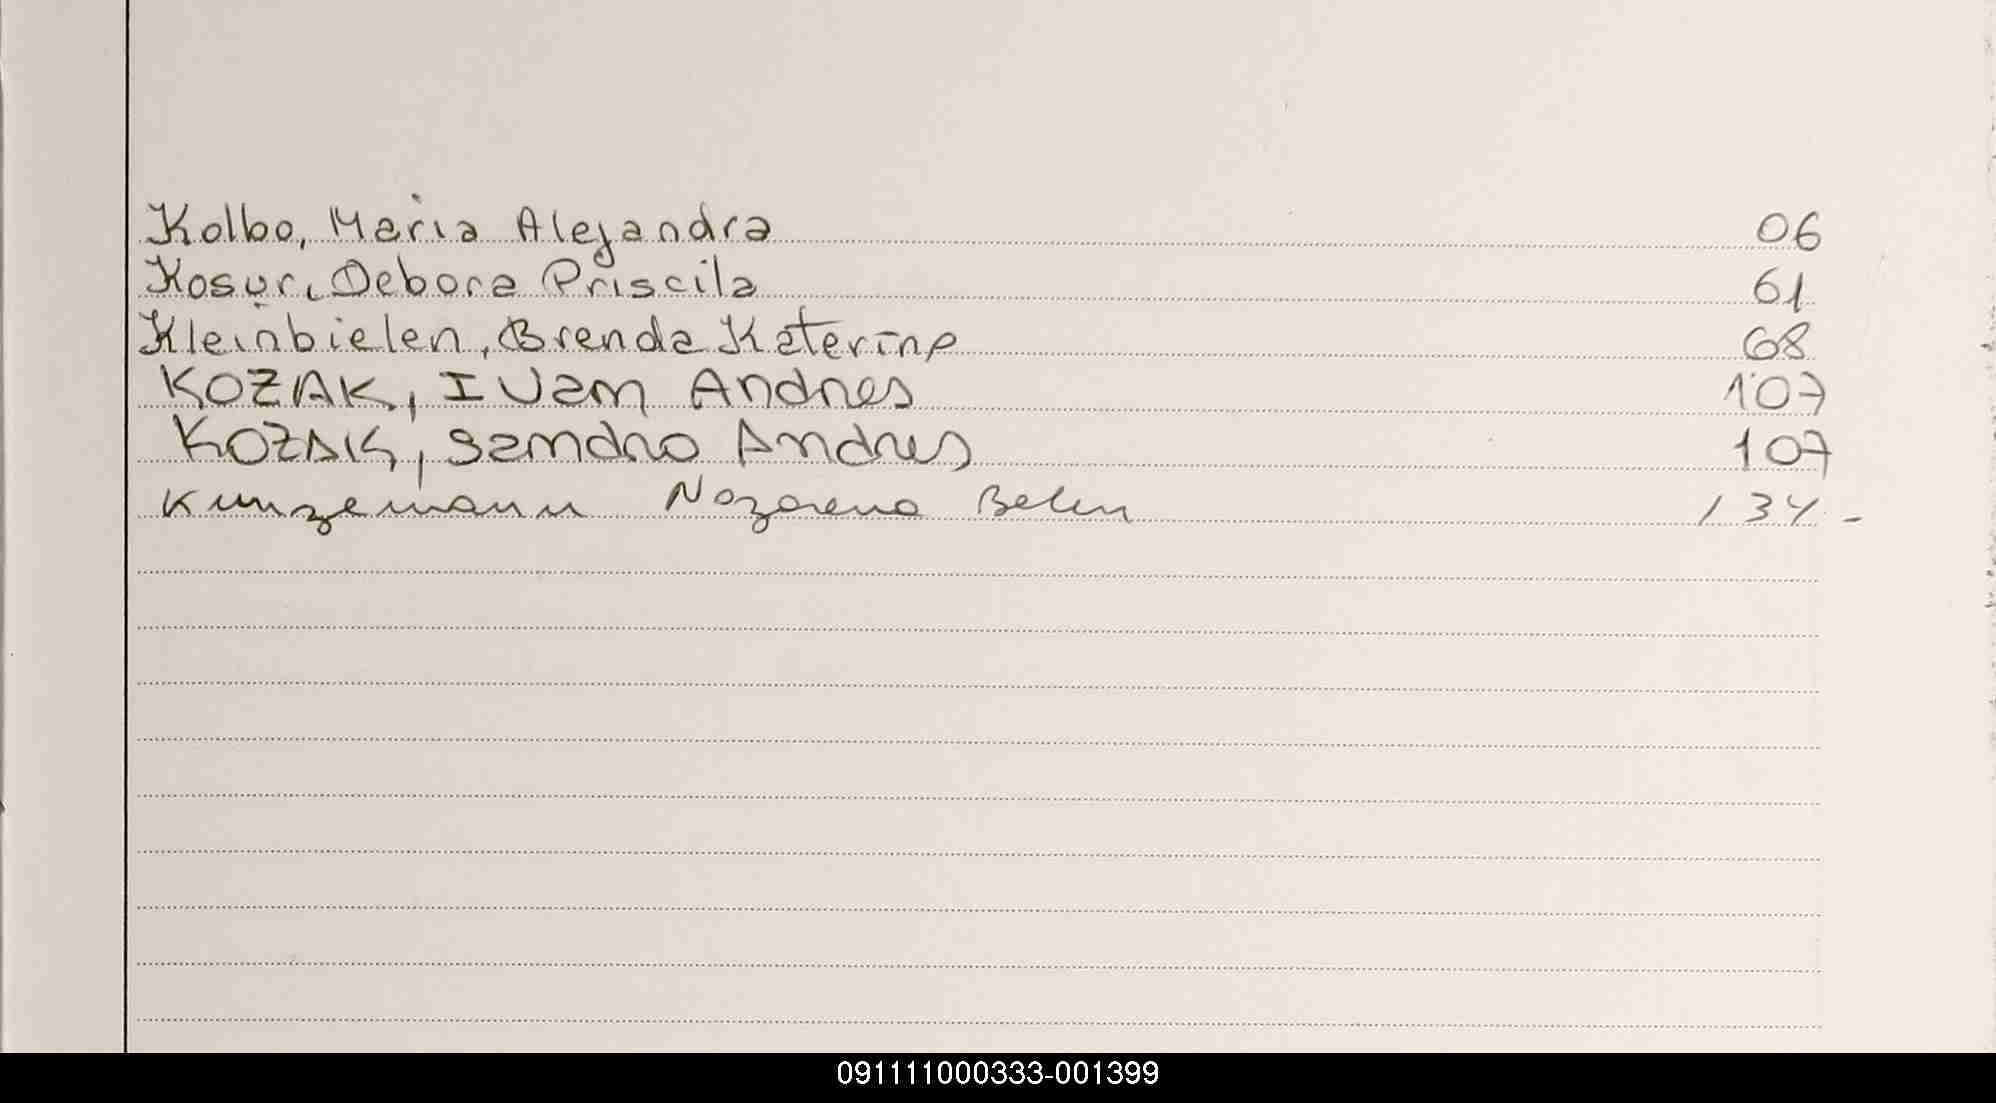 Kolbo, Maria Alejandra 06
Kosur, Debora Priscila 61
Kleinbielen, Brenda Katerina 68
KOZAK, IVan Andres 107
KOZAK, Sandro Andres 107
Kunzemann Nazarena Belen 134-
091111000333-001399